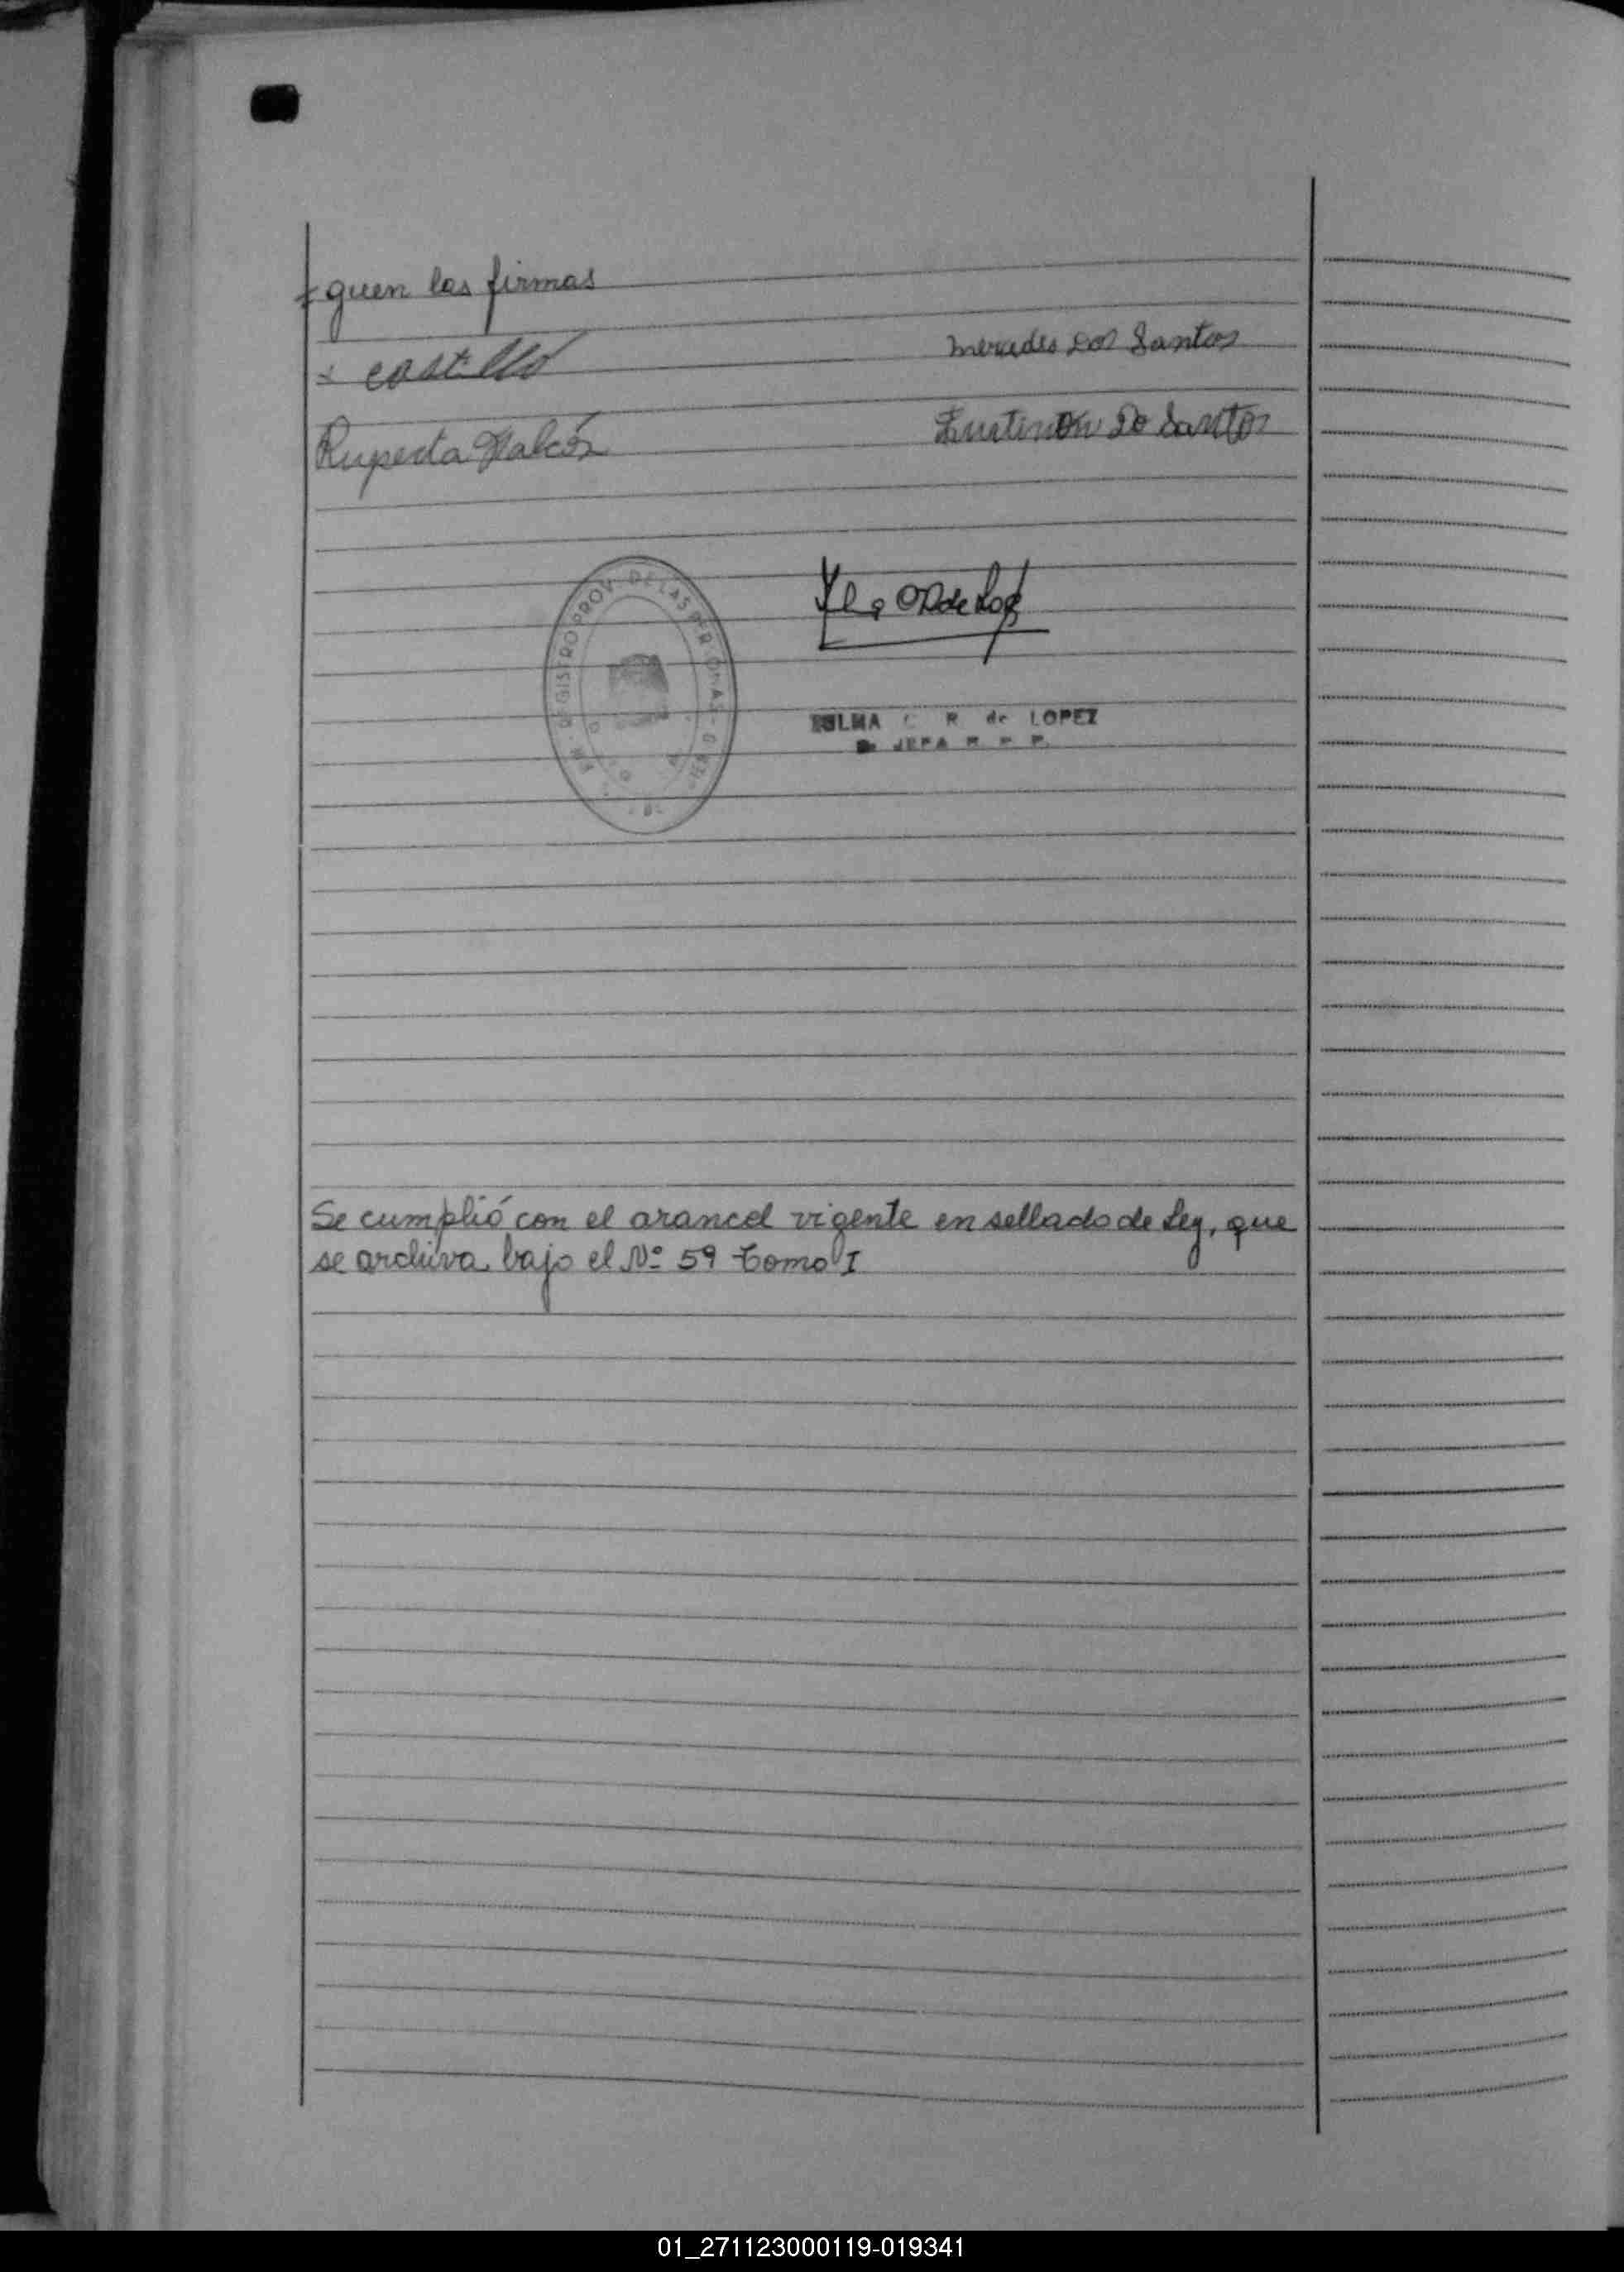 guen las firmas
castillo
mercedes Dos Santos
Ruperta
Do Santos
REGISTRO PROV. DE LAS PERSONAS
C R. de LOPEZ
JEFA R. P. P.
Se cumplió con el arancel vigente en sellado de Ley, que
se archiva bajo el Nº 59 Tomo I
01_271123000119-019341